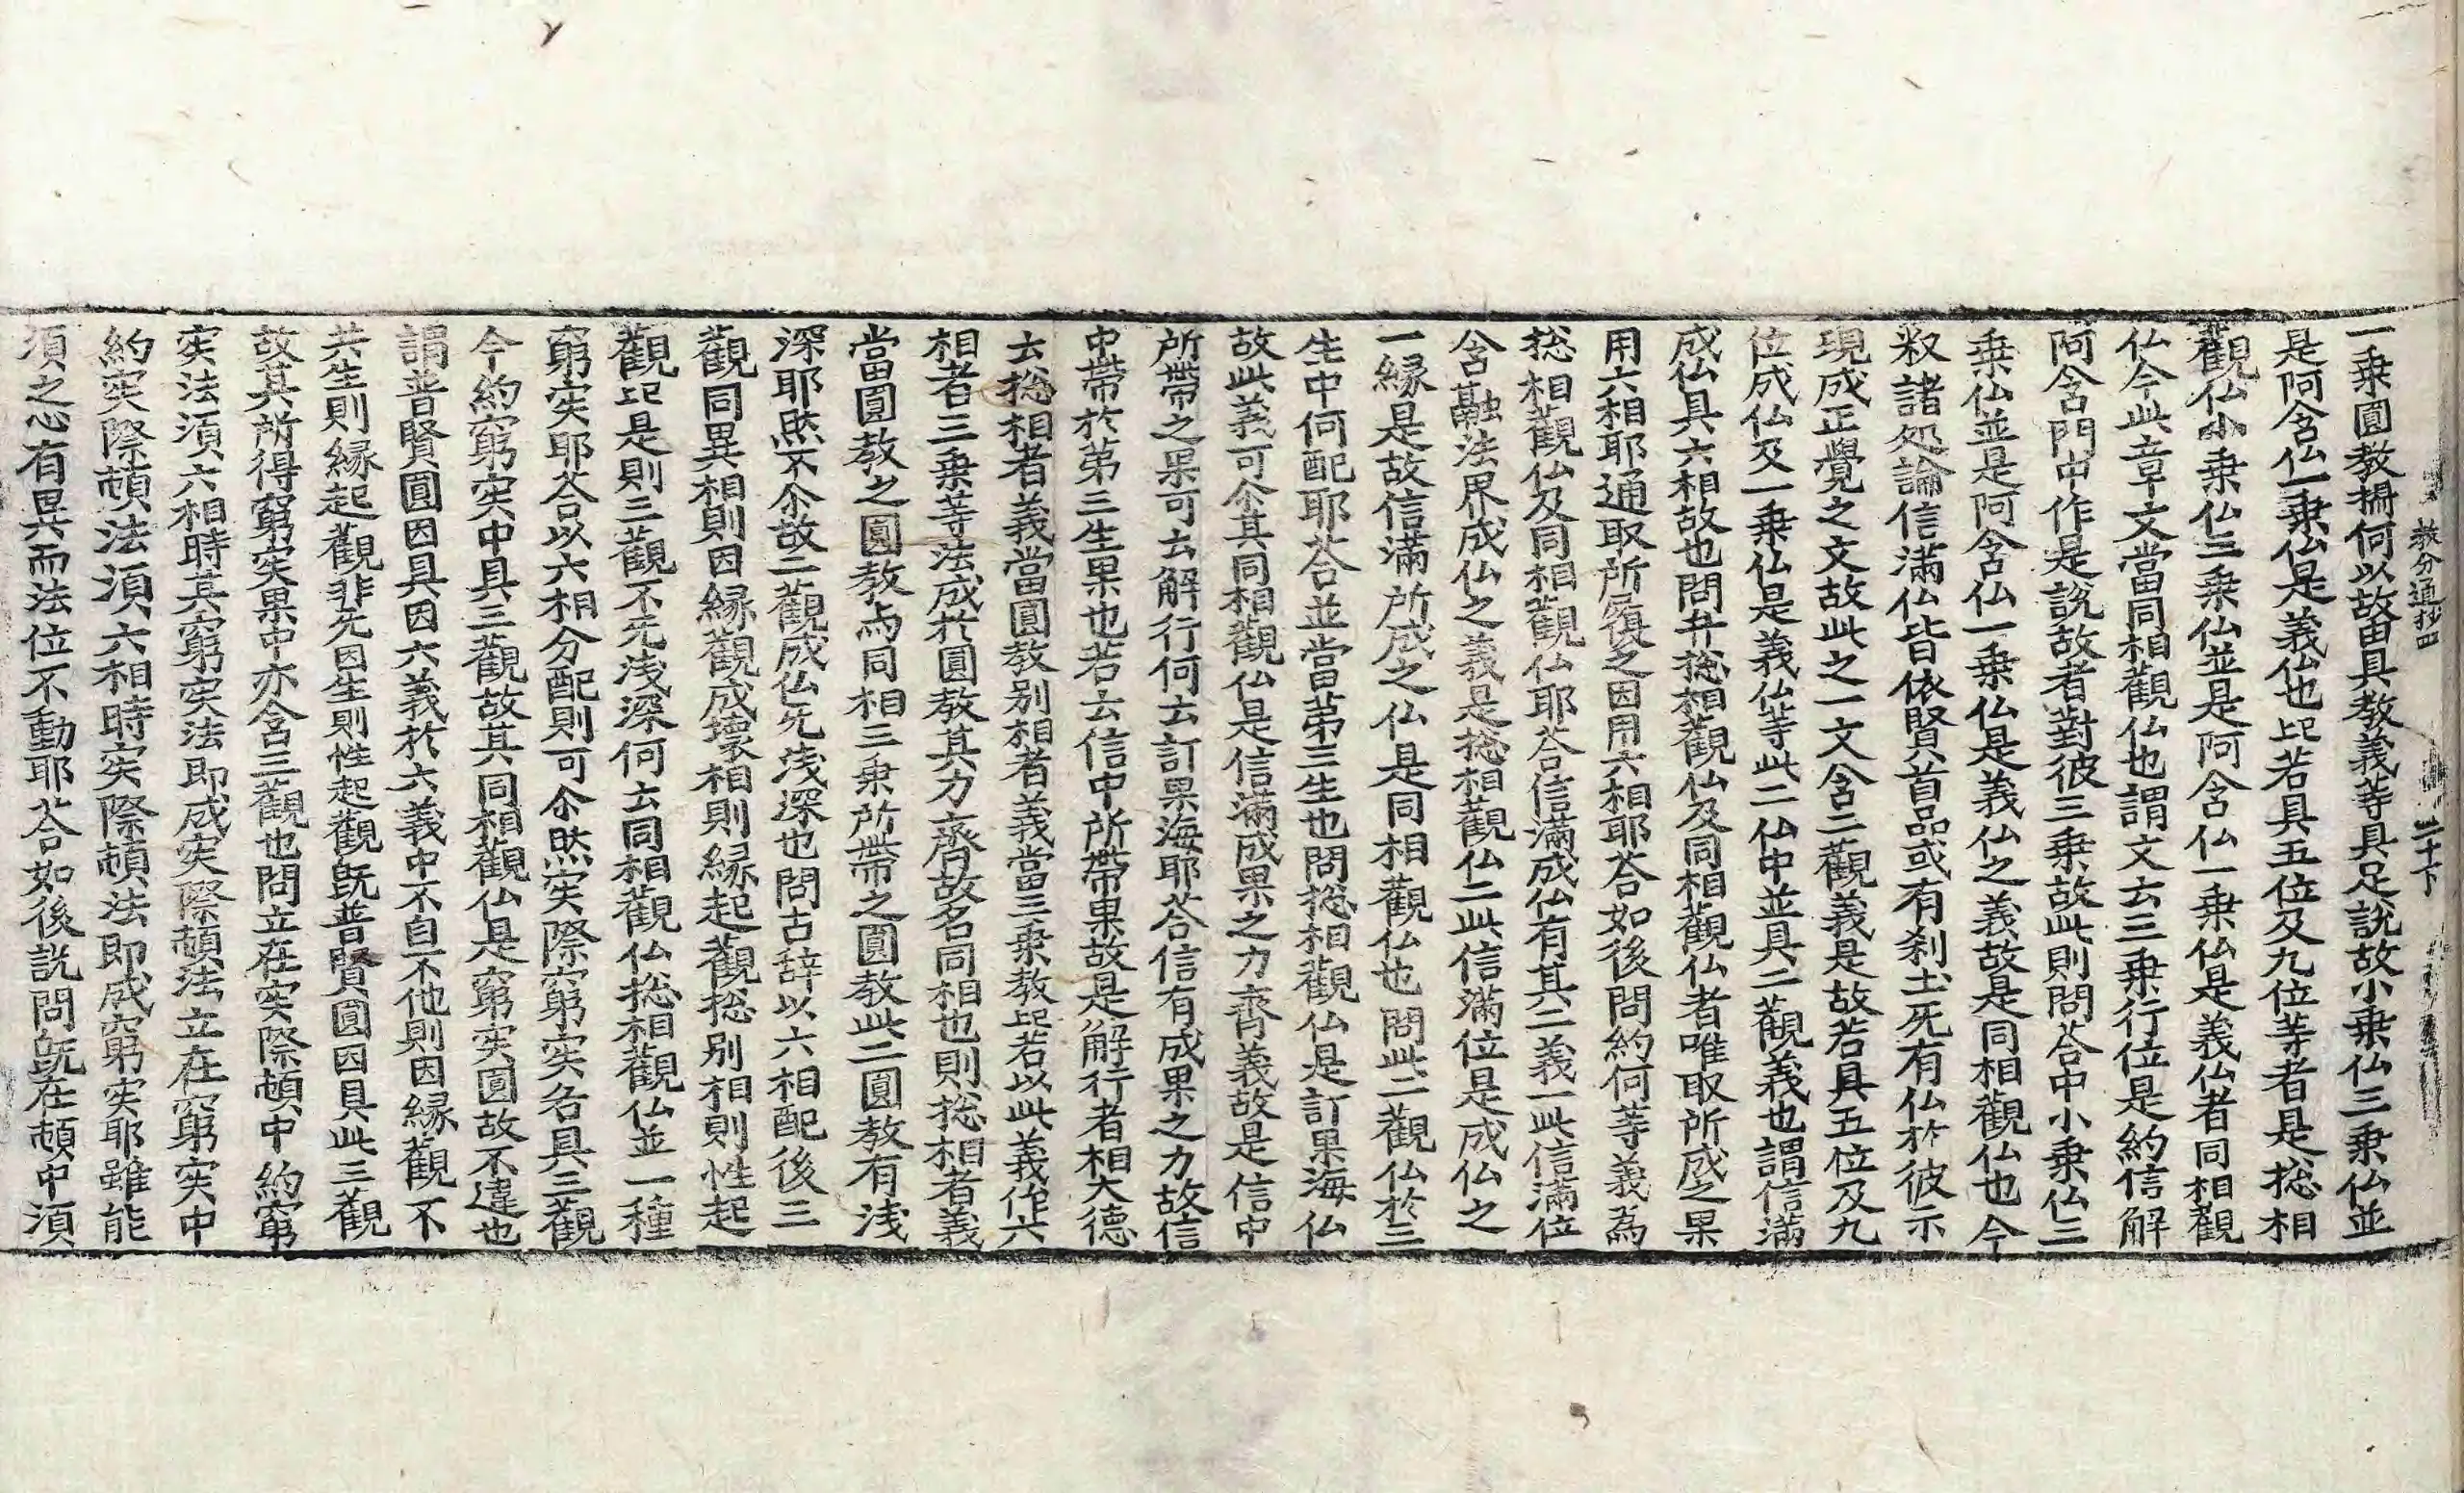 教分通抄四　二十下
一乗圓教揀何以故由具教義等具足說故小乗仏三乗仏並
是阿含仏一乗仏是義仏也此若具五位及九位等者是捴相
觀仏小乗仏三乗仏並是阿含仏一乗仏是義仏者同相觀
仏今此章文當同相觀仏也謂文云三乗行位是約信解
阿含門中作是說故者對彼三乗故此則問荅中小乗仏三
乗仏並是阿含仏一乗仏是義仏之義故是同相觀仏也今
叙諸処論信滿仏皆依賢首品或有刹土旡有仏於彼示
現成正覺之文故此之一文含二觀義是故若具五位及九
位成仏及一乗仏是義仏等此二仏中並具二觀義也謂信滿
成仏具六相故也問幷捴相觀仏及同相觀仏者唯取所成之果
用六相耶通取所履之因用六相耶荅如後問約何等義為
捴相觀仏及同相觀仏耶荅信滿成仏有其二義一此信滿位
含融法界成仏之義是捴相觀仏二此信滿位是成仏之
一縁是故信滿所成之仏是同相觀仏也問此二觀仏於三
生中何配耶荅並當第三生也問捴相觀仏是訂果海仏
故此義可尒其同相觀仏是信滿成果之力齊義故是信中
所帶之果可云解行何云訂果海耶荅信有成果之力故信
中帶於第三生果也若云信中所帶果故是解行者相大德
云捴相者義當圓教别相者義當三乗教此若以此義作六
相者三乗等法成於圓教其力齊故名同相也則捴相者義
當圓教之圓教而同相三乗所帶之圓教此二圓教有浅
深耶然不尒故二觀成仏旡浅深也問古辞以六相配後三
觀同異相則因縁觀成壞相則縁起觀捴别相則性起
觀此是則三觀不旡浅深何云同相觀仏捴相觀仏並一種
窮実耶荅以六相分配則可尒然実際窮実各具三觀
今約窮実中具三觀故其同相觀仏是窮実圓故不違也
謂普賢圓因具因六義於六義中不自不他則因縁觀不
共生則縁起觀非先因生則性起觀旣普賢圓因具此三觀
故其所得窮実果中亦含三觀也問立在実際頓中約窮
実法湏六相時其窮実法即成実際頓法立在窮実中
約実際頓法湏六相時実際頓法即成窮実耶雖能
湏之心有異而法位不動耶荅如後說問旣在頓中湏